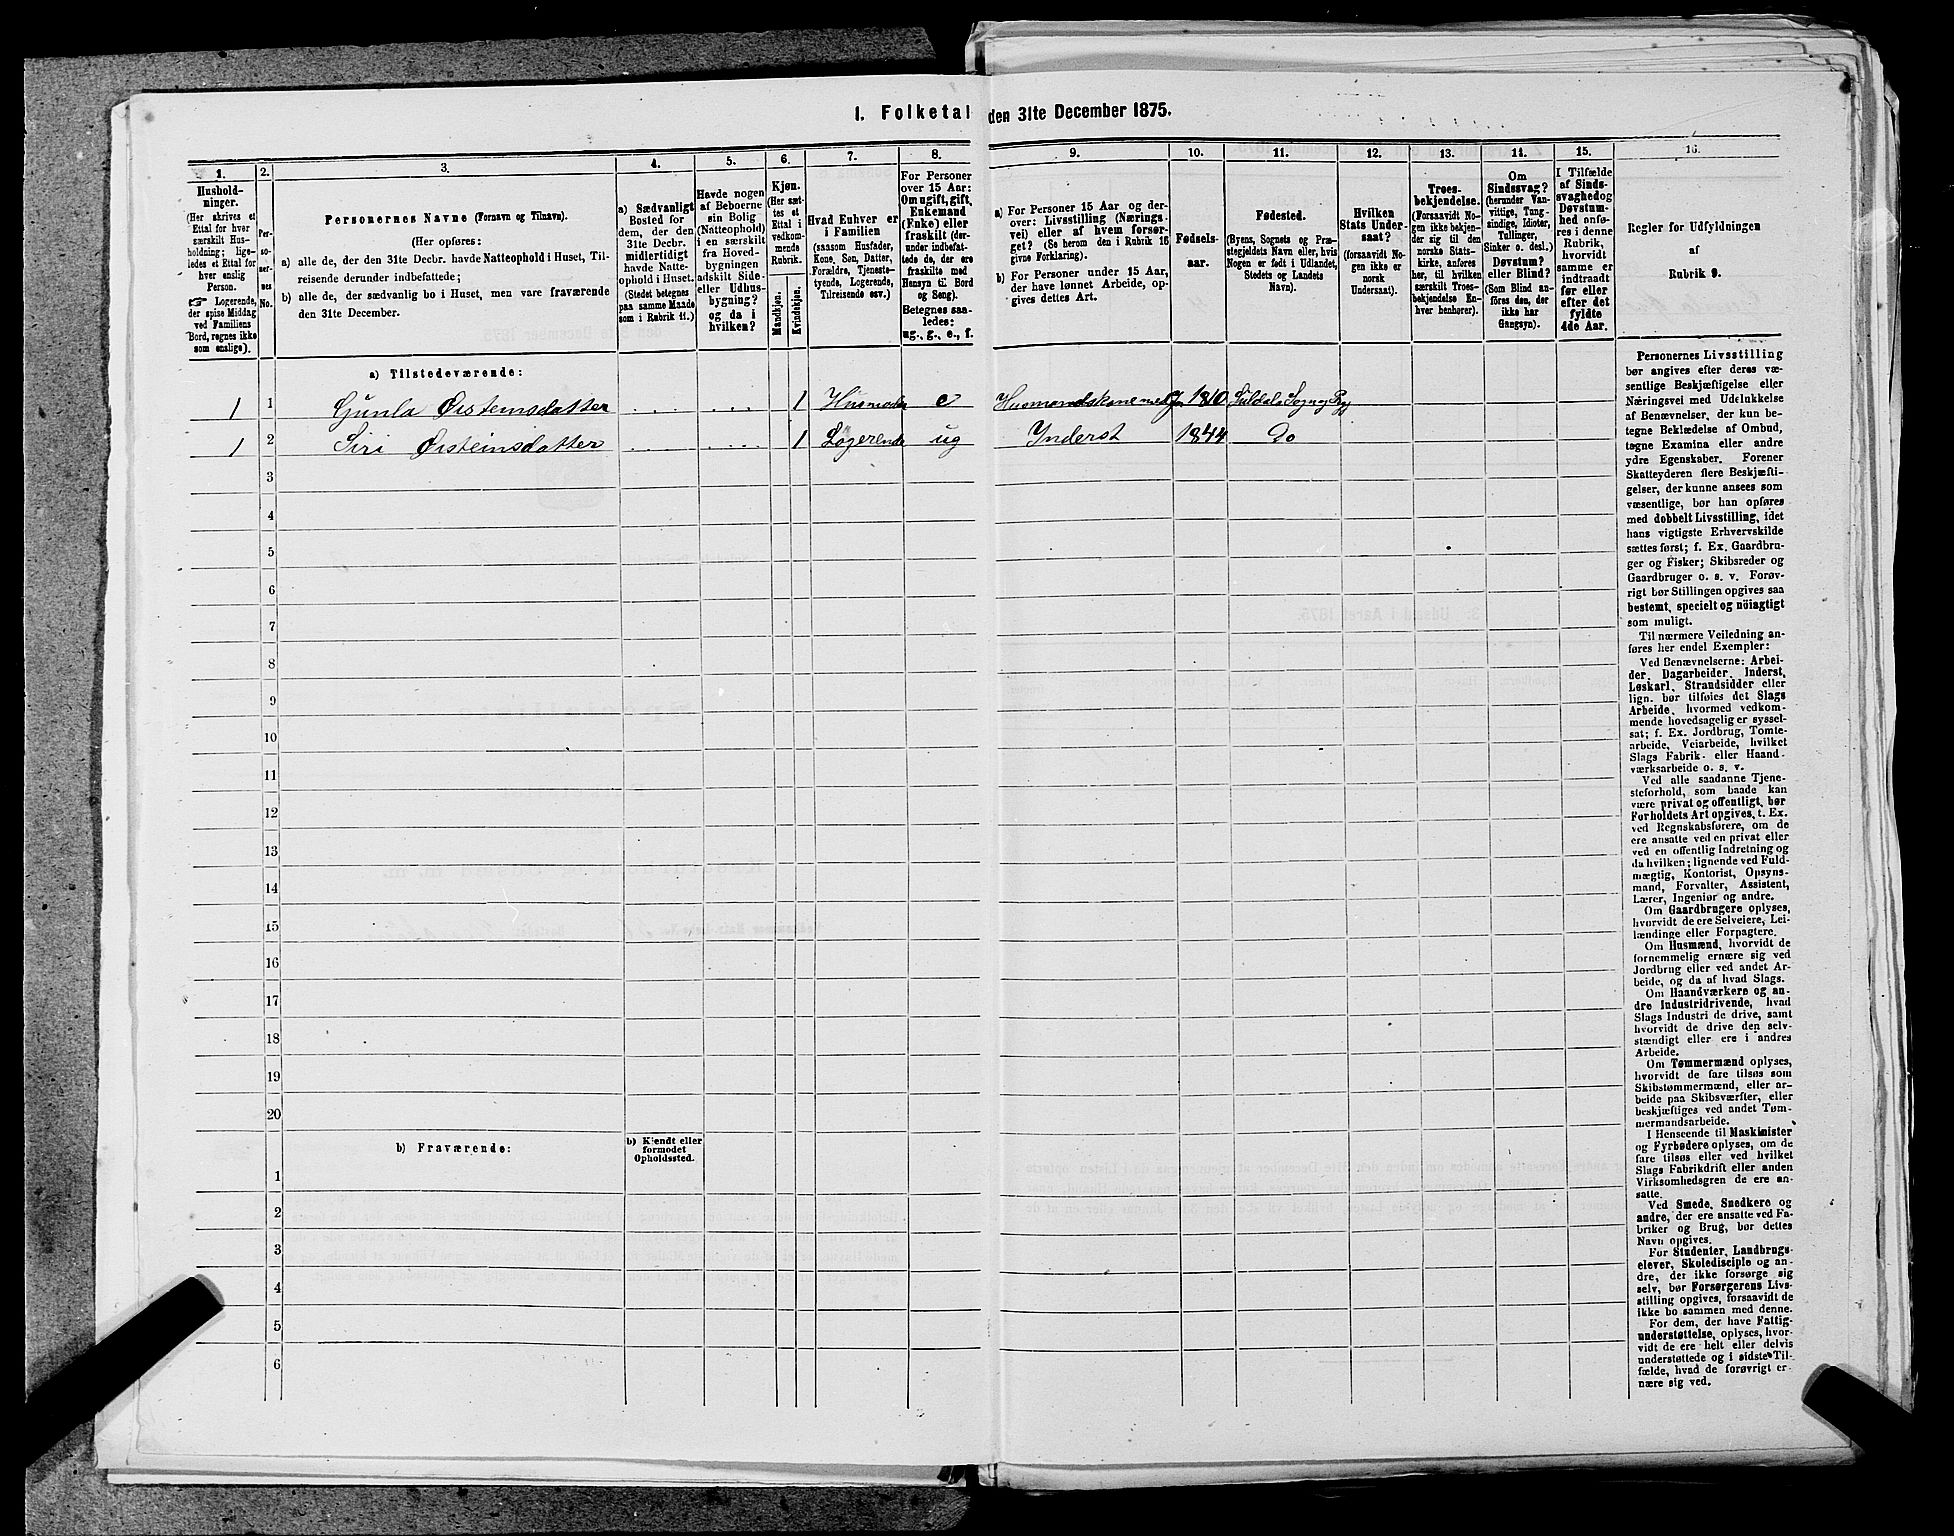 1. Folketal den 31te December 1875.
1.
2.
3.
4.
5.
6.
7.
8.
9.
10.
11.
12.
13.
14.
15.
16.
Hushold-
ninger.
(Her skrives et
Ettal for hver
særskilt Hus-
holdning; lige-
ledes et Ettal for
hver enslig
Person.
☞ Logerende,
der spise Middag
ved Familiens
Bord, regnes ikke
som enslige).
Per-
so-
ner-
nes
No.
Personernes Navne (Fornavn og Tilnavn).
(Her opføres:
a) alle de, der den 31te Decbr. havde Natteophold i Huset, Til-
reisende derunder indbefattede;
b) alle de, der sædvanlig bo i Huset, men vare fraværende
den 31te December.
a) Sædvanligt
Bosted for
dem, der den
31te Decbr.
midlertidigt
havde Natte-
ophold i Huset.
(Stedet betegnes
paa samme Maade
som i Rubrik 11.)
Havde nogen
af Beboerne
sin Bolig
(Natteophold)
i en særskilt
fra Hoved-
bygningen
adskilt Side-
eller Udhus-
bygning?
og da i
hvilken?
Kjøn.
(Her sæt-
tes et
Ettal i
vedkom-
mende
Rubrik.
Mandkjøn.
Kvindekjøn.
Hvad Enhver er
i Familien
(saasom Husfader,
Kone, Søn, Datter,
Forældre, Tjeneste-
tyende, Logerende,
Tilreisende osv.)
For Personer
over 15 Aar:
Om ugift, gift,
Enkemand
(Enke) eller
fraskilt (der-
under indbefat-
tede de, der ere
fraskilte med
Hensyn til Bord
og Seng).
Betegnes saa-
ledes:
ug., g., e., f.
a) For Personer 15 Aar og der-
over: Livsstilling (Nærings-
vei) eller af hvem forsør-
get? (Se herom den i Rubrik 16
givne Forklaring).
b) For Personer under 15 Aar,
der have lønnet Arbeide, op-
gives dettes Art.
Fødsels-
aar.
Fødested.
(Byens, Sognets og Præ-
stegjeldets Navn eller, hvis
Nogen er født i Udlandet,
Stedets og Landets
Navn).
Hvilken
Stats Under-
saat?
(forsaavidt No-
gen ikke er
norsk
Undersaat).
Troes-
bekjendelse.
(Forsaavidt No-
gen ikke bekjen-
der sig til den
norske Stats-
kirke, anføres
her, til hvilken
særskilt Troes-
bekjendelse En-
hver henhører).
Om
Sindssvag?
(herunder Van-
vittige, Tung-
sindige, Idioter,
Tullinger,
Sinker o. desl.)
Døvstum?
eller Blind?
(Som Blind an-
føres den, der
ikke har
Gangsyn).
I Tilfælde
af Sinds-
svaghed og
Døvstum-
hed onfø-
res i denne
Rubrik,
hvorvidt
samme er
indtraadt
før eller
efter det
fyldte
4de Aar.
Regler for Udfyldningen
af
Rubrik 9.
a) Tilstedeværende:
1 1 Gunla Øisteinsdatter 1 Husmoder e 1810 Suldals Sogn og Pgj
1 2 Siri Øisteinsdatter 1 Logerende ug Inderst 1844 do
3
4
5
6
7
8
9
10
11
12
13
14
15
16
17
18
19
20
b) Fraværende:
b) Kjendt eller
formodet
Opholdssted.
1
2
3
4
5
6
Personernes Livsstilling
bør angives efter deres væ-
sentlige Beskjæftigelse eller
Næringsvei med Udelukkelse
af Benævnelser, der kun be-
tegne Beklædelse af Ombud,
tagne Examina eller andre
ydre Egenskaber. Forener
Skatteyderen flere Beskjæfti-
gelser, der kunne ansees som
væsentlige, bør han opføres
med dobbelt Livsstilling, idet
hans vigtigste Erhvervskilde
sættes først; f. Ex. Gaardbru-
ger og Fisker; Skibsreder og
Gaardbruger o. s. v. Forøv-
rigt bør Stillingen opgives saa
bestemt, specielt og nöiagtigt
som muligt.
Til nærmere Veiledning an-
føres her endel Exempler:
Ved Benævnelserne: Arbei-
der, Dagarbeider, Inderst,
Løskarl, Strandsidder eller
lign. bør tilføies det Slags
Arbeide, hvormed vedkom-
mende hovedsagelig er syssel-
sat; f. Ex. Jordbrug, Tomte-
arbeide, Veiarbeide, hvilket
Slags Fabrik- eller Haand-
værksarbeide o. s. v.
Ved alle saadanne Tjene-
steforhold, som baade kan
være privat og offentligt, bør
Forholdets Art opgives, t. Ex.
ved Regnskabsførere, om de
ere ansatte ved en privat eller
ved en offentlig Indretning og
da hvilken; lignende ved Fuld-
mægtig, Kontorist, Opsyns-
mand, Forvalter, Assistent,
Lærer, Ingeniør og andre.
Om Gaardbrugere oplyses,
hvorvidt de ere Selveiere, Lei-
lændinge eller Forpagtere.
Om Husmænd, hvorvidt de
fornemmelig ernære sig ved
Jordbrug eller ved andet Ar-
beide, og da af hvad Slags.
Om Haandværkere og an-
dre Industridrivende, hvad
Slags Industri de drive, samt
hvorvidt de drive den selv-
stændigt eller ere i andres
Arbeide.
Om Tømmermænd oplyses,
hvorvidt de fare tilsøs som
Skibstømmermænd, eller ar-
beide paa Skibsværfter, eller
beskjæftiges ved andet Tøm-
mermandsarbeide.
I Henseende til Maskinister
og Fyrbødere oplyses, om de
fare tilsøs eller ved hvilket
Slags Fabrikdrift eller anden
Virksomhedsgren de ere an-
satte.
Ved Smede, Snedkere og
andre, der ere ansatte ved Fa-
briker og Brug, bør dettes
Navn opgives.
For Studenter, Landbrugs-
elever, Skoledisciple og an-
dre, der ikke forsørge sig
selv, bør Forsørgerens Livs-
stilling opgives, forsaavidt de
ikke bo sammen med denne.
For dem, der have Fattig-
understøttelse, oplyses, hvor-
vidt de ere helt eller delvis
understøttede og i sidste Til-
fælde, hvad de forøvrigt er-
nære sig ved.